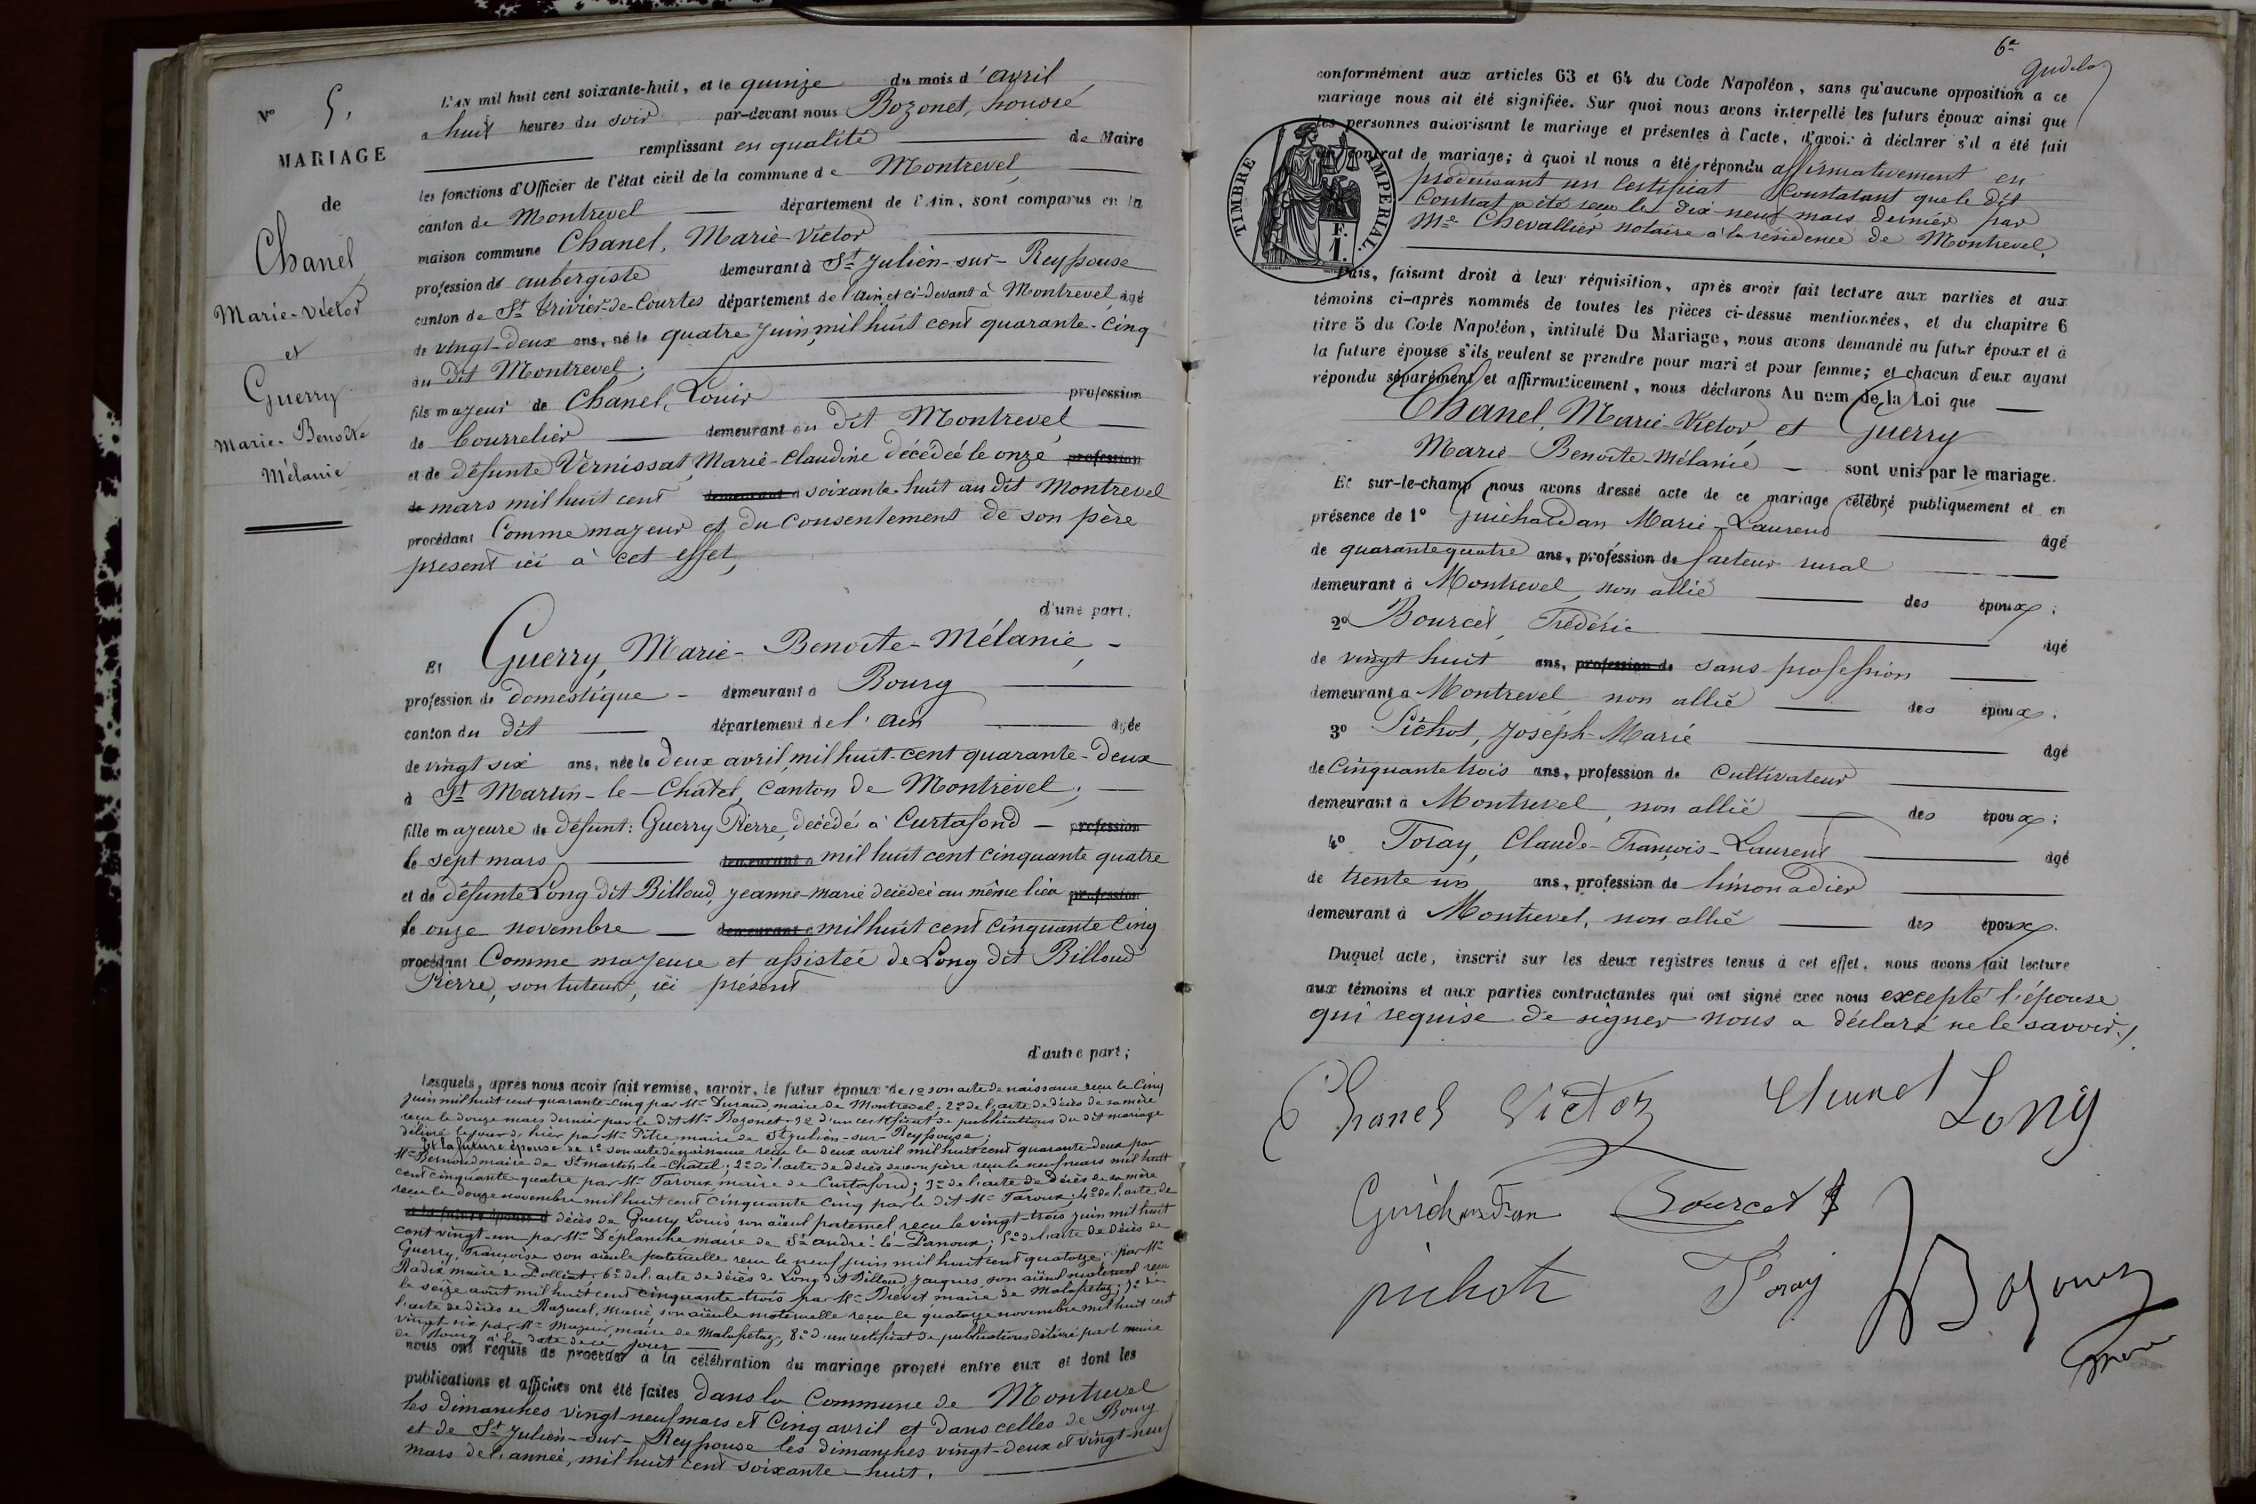 N° 5.
MARIAGE
de
Chanel
Marie-Victor
et
Guerry
Marie-Benoîte
Mélanie
L'AN mil huit cent soixante-huit, et le quinze du mois d'avril
a huit heures du soir par-devant nous Bozonet, honoré
remplissant en qualité de Maire
les fonctions d'Officier de l'état civil de la commune de Montrevel
canton de Montrevel département de l'Ain, sont comparus en la
maison commune Chanel, Marie-Victor
profession de aubergiste demeurant à St Julien-sur-Reyssouse
canton de St Trivier-de-Courtes département de l'ain, et ci-devant à Montrevel âgé
de vingt-deux ans, né le quatre Juin mil huit cent quarante-cinq
au dit Montrevel;
fils majeur de Chanel, Louis profession
de bourrelier demeurant au dit Montrevel
et de défunte Vernissat, Marie-Claudine décédée le onze profession
de mars mil huit cent demeurant à soixante-huit au dit Montrevel
procédant Comme majeur et du consentement de son père
present ici à cet effet,
d'une part.
Et Guerry, Marie-Benoîte-Mélanie,
profession de domestique demeurant à Bourg
canton du dit département de l'ain âgée
de vingt six ans, née le deux avril mil huit-cent quarante-deux
à St Martin-le-Chatel, canton de Montrevel;
fille majeure de défunt: Guerry Pierre, décédé à Curtafond profession
le sept mars demeurant à mil huit cent cinquante quatre
et de défunte Long dit Billoud, Jeanne-Marie décédée au même lieu profession
le onze novembre demeurant à mil huit cent cinquante cinq
procédant Comme majeure et assistée de Long dit Billoud
Pierre, son tuteur, ici présent
d'autre part;
Lesquels, après nous avoir fait remise, savoir, le futur époux de 1° son acte de naissance recu le cinq
Juin mil huit cent quarante-cinq par Mr Durand, maire de Montrevel; 2° de l'acte de décès de sa mère
recu le douze mars dernier par le dit Mr Bozonet; 3° d'un certificat de publications du dit mariage
délivré le jour de hier par Mr Pitre maire de St Julien-sur-Reyssouse;
Et la future épouse de 1° son acte de naissance recu le deux avril mil huit cent quarante-deux par
Mr Bernoud maire de St martin-le-chatel; 2° de l'acte de décès de son père recu le neuf mars mil huit
cent cinquante-quatre par Mr Taroux maire de Curtafond; 3° de l'acte de décès de sa mère
recu le douze novembre mil huit cent cinquante cinq par le dit Mr Taroux; 4° de l'acte de
décès de Guerry Louis, son aïeul paternel, recu le vingt-trois juin mil huit
cent vingt-un par Mr Déplanche maire de St andré-le-Panoux; 5° de l'acte de décès de
Guerry, Françoise son aïeule paternelle recu le neuf juin mil huit cent quatorze par Mr
Radix maire de Polliat; 6° de l'acte de décès de Long dit Billoud Jacques, son aïeul maternel recu
le seize août mil huit cent cinquante-trois par Mr Prévet maire de Malafretaz; 7° de
l'acte de décès de Razurel, Marie, son aïeule maternelle recu le quatorze novembre mil huit cent
vingt six par Mr Mazuir, maire de Malafretaz; 8° d'un certificat de publications délivré par le maire
de Bourg à la date de ce jour
nous ont requis de procéder à la célébration du mariage projeté entre eux et dont les
publications et affiches ont été faites dans la Commune de Montrevel
les dimanches vingt-neuf mars et cinq avril et dans celles de Bourg
et de St Julien-sur-Reyssouse les dimanches vingt-deux et vingt-neuf
mars de l'année, mil huit cent soixante-huit.
6e
conformément aux articles 63 et 64 du Code Napoléon, sans qu'aucune opposition a ce
mariage nous ait été signifiée. Sur quoi nous avons interpellé les futurs époux ainsi que
les personnes autorisant le mariage et présentes à l'acte, d'avoir à déclarer s'il a été fait
un contrat de mariage; à quoi il nous a été répondu affirmativement en
produisant un Certificat Constatant que le dit
Contrat a été recu le dix-neuf mars dernier par
Me Chevallier notaire à la résidence de Montrevel.
TIMBRE IMPERIAL
F.
1.
Puis, faisant droit à leur réquisition, après avoir fait lecture aux parties et aux
témoins ci-après nommés de toutes les pièces ci-dessus mentionnées, et du chapitre 6
titre 5 du Code Napoléon, intitulé Du Mariage, nous avons demandé au futur époux et à
la future épouse s'ils veulent se prendre pour mari et pour femme; et chacun d'eux ayant
répondu séparément et affirmativement, nous déclarons Au nom de la Loi que
Chanel, Marie-Victor, et Guerry
Marie-Benoîte-Mélanie sont unis par le mariage.
Et sur-le-champ nous avons dressé acte de ce mariage célébré publiquement et en
présence de 1° Guichardan Marie-Laurend âgé
de quarante quatre ans, profession de facteur rural
demeurant à Montrevel, non allié des époux;
2° Bourcet, Frédéric âgé
de vingt huit ans, profession de sans profession
demeurant à Montrevel non allié des époux;
3° Pichot, Joseph-Marie âgé
de cinquante trois ans, profession de cultivateur
demeurant à Montrevel, non allié des époux;
4° Foray, Claude-François-Laurent âgé
de trente un ans, profession de limonadier
demeurant à Montrevel, non allié des époux.
Duquel acte, inscrit sur les deux registres tenus à cet effet, nous avons fait lecture
aux témoins et aux parties contractantes qui ont signé avec nous excepté l'épouse
qui requise de signer nous a déclaré ne le savoir.
Chanel Victor Chanel Long
Guichardan Bourcet
pichot Foray Bozonet
maire